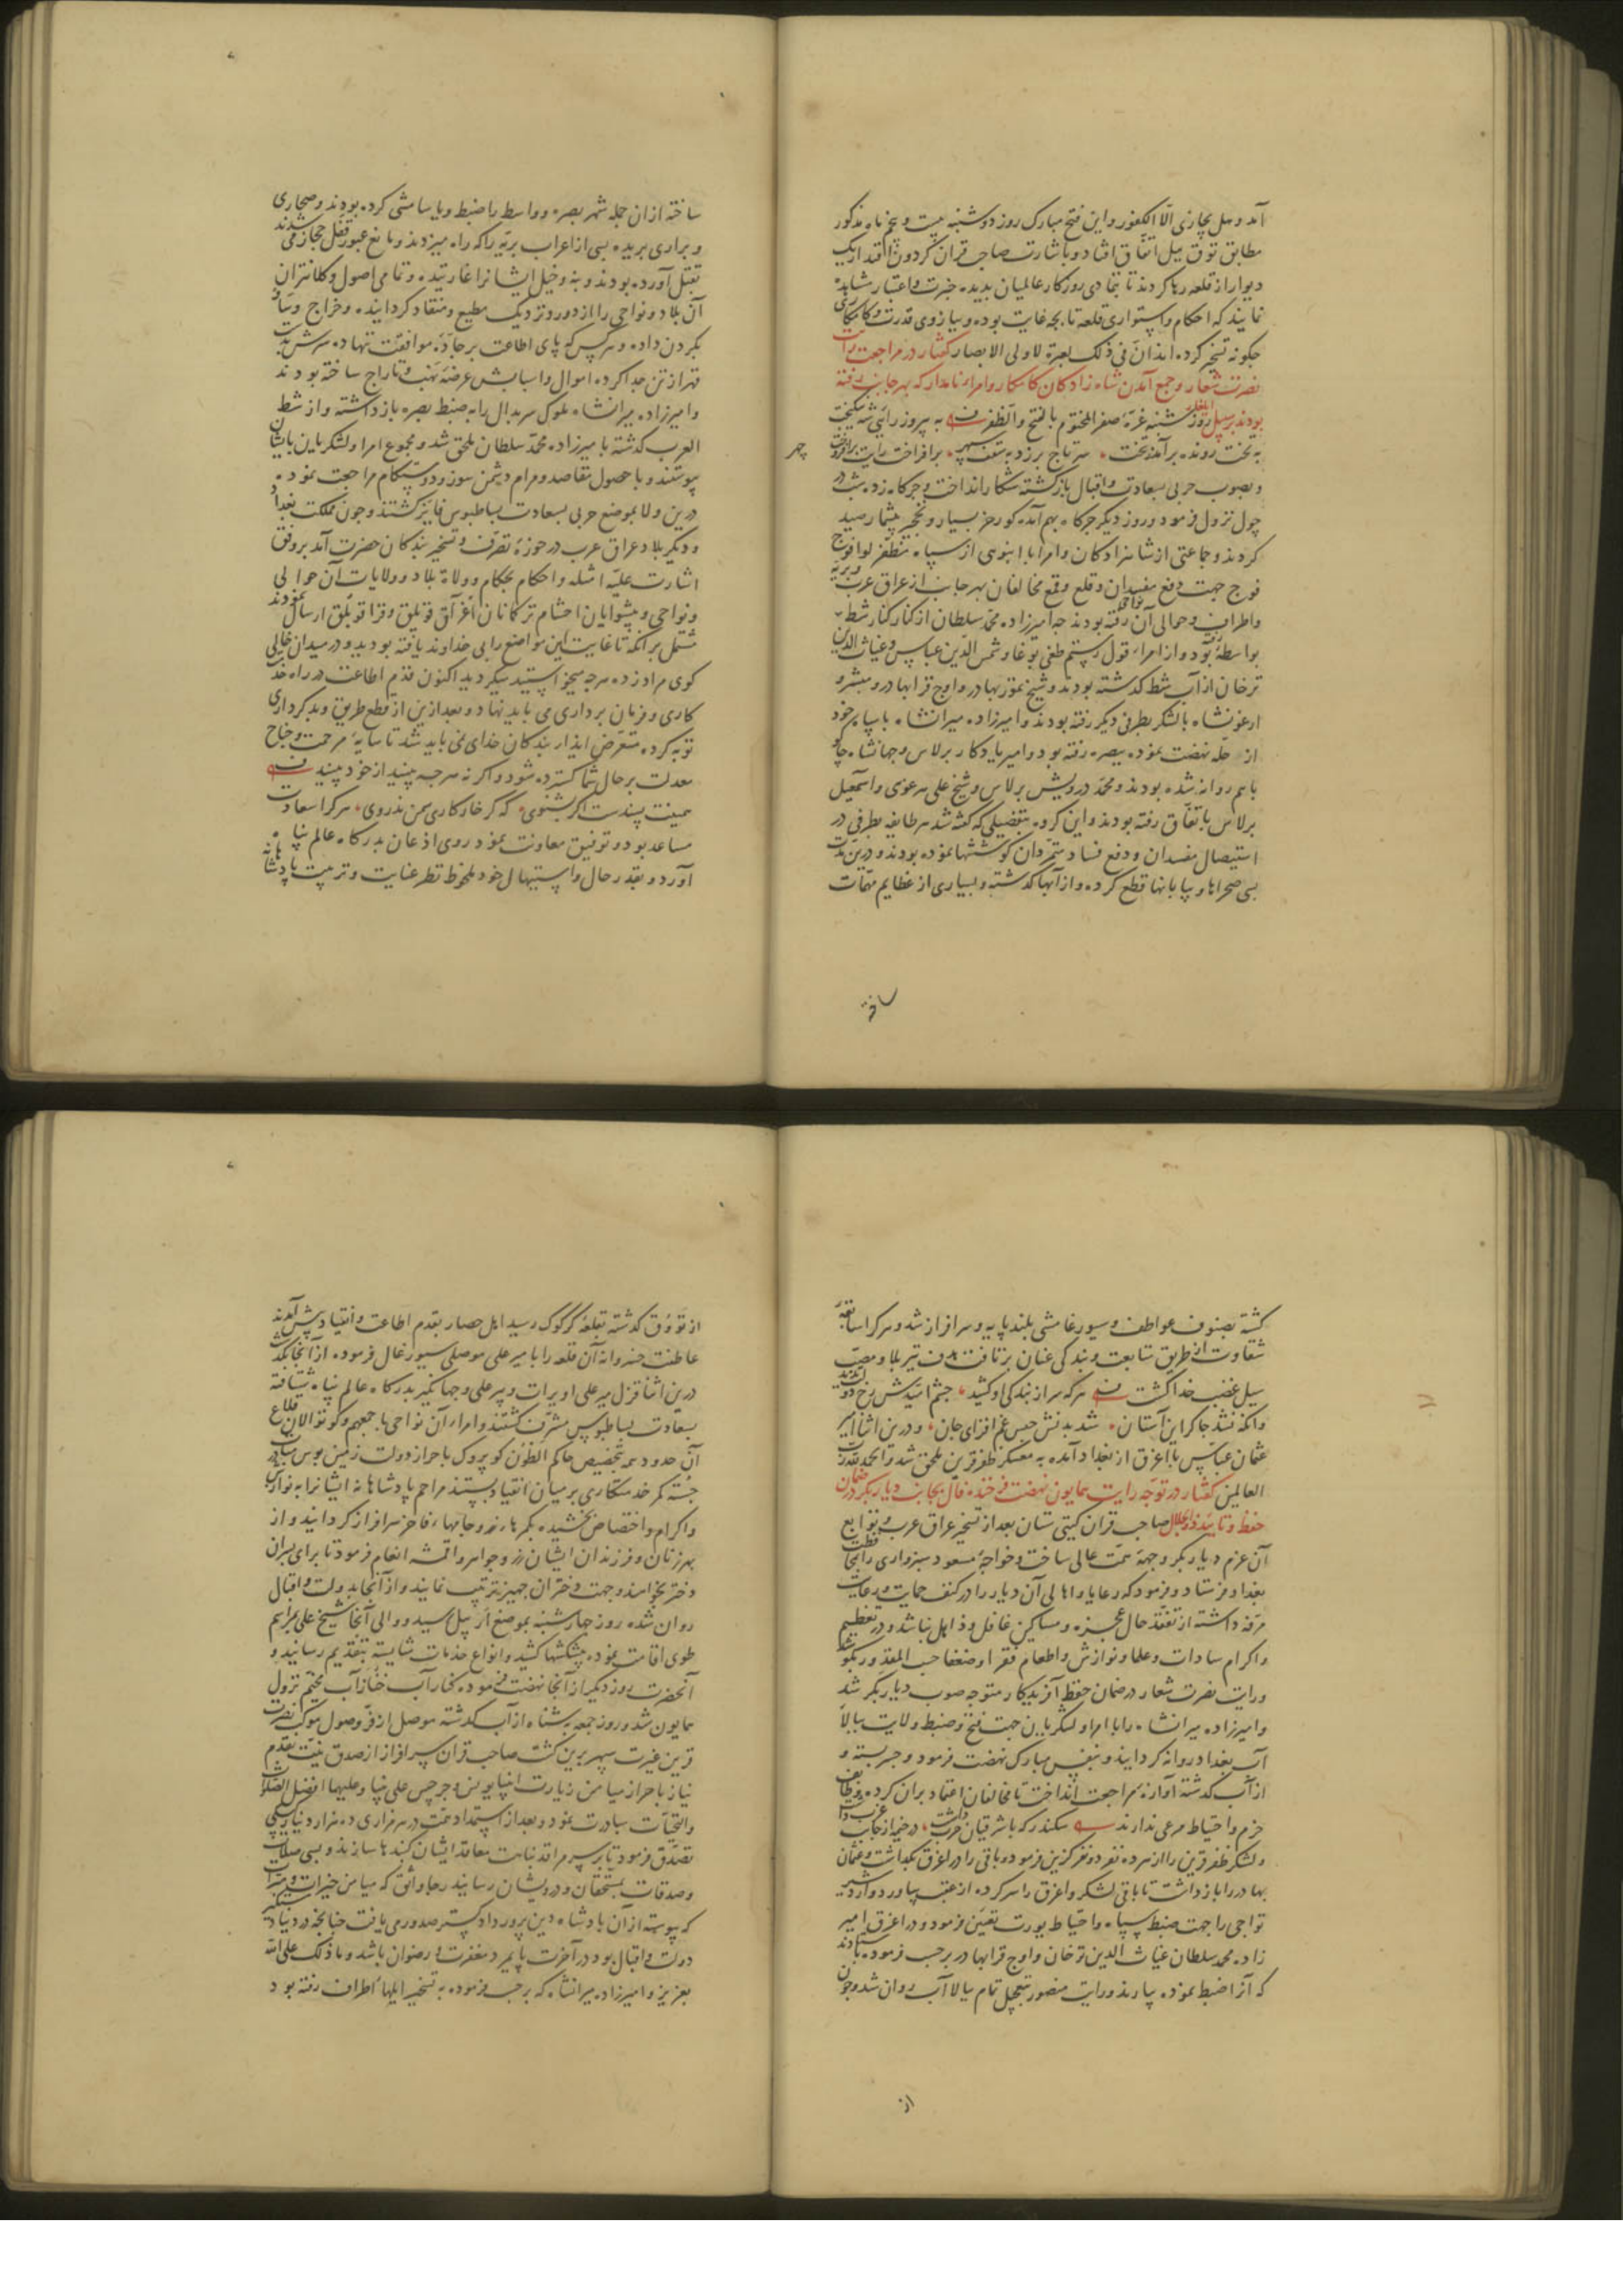 آمد و هل یجازی الّا الکفور و این فتح مبارک روز دوشنبه بیست و پنجم ماه مذکور
مطابق توق ییل اتفاق افتاد و باشارت صاحب قران گردون اقتدار یک
دیوار از قلعه رها کردند تا بتمادی روزگار عالمیان بدیده خبرت و اعتبار مشاهده
نمایند که احکام و استواری قلعه تا بچه غایت بوده و ببازوی قدرت و کامکاری
چگونه تسخیر کرده اند ان فی ذلک لعبرة لاولی الابصار گفتار در مراجعت رایت
نصرت شعار و جمع آمدن شاه زادکان کامکار و امراء نامدار که بهر جانب رفته
بودند بر سبیل ایلغار روز شنبه غرّه صفر المختوم بالفتح و الظفر به پیروز رایی شه نیکبخت
به تخت رونده برآمد ز تخت سر تاج برزد به سقف سپهر برافراخت رایت برافروخت
چهر
و بصوب حربی بسعادت و اقبال بازگشته شکار انداخت و جرکه زده شب در
چول نزول فرمود و روز دیگر جرکه بهم آمده گورخر بسیار و نخجیر بیشمار صید
کردند و جماعتی از شاهزادکان و امرا با انبوهی از سپاه مظفّر لوا فوج
فوج جهت دفع مفسدان و قلع و قمع مخالفان بهر جانب از عراق عرب و بریّه
واطراف و حوالی آن نواحی رفته بودند چه امیرزاده محمد سلطان از کنار کنار شط
بواسطه رفته بود و از امراء قول رستم طغی بوغا و شمس الدین عباس و غیاث الدین
ترخان از آب شط گذشته بودند و شیخ تمور بهادر و اوج قرا بهادر و مبشر و
ارغونشاه با لشکر بطرفی دیگر رفته بودند و امیرزاده میرانشاه با سپاه خود
از حلّه نهضت نموده ببصره رفته بود و امیر یادکار برلاس و جهانشاه جاکو
باهم روانه شده بودند و محمد درویش برلاس و شیخ علی سرغوی و اسمعیل
برلاس باتفاق رفته بودند و این گروه بتفصیلی که گفته شد هر طایفه بطرفی در
استیصال مفسدان و دفع فساد متمردان کوششها نموده بودند و درین مدت
بسی صحراها و بیابانها قطع کرده و از آبها گذشته و بسیاری از عظایم مهمات
ساخته
ساخته از ان جمله شهر بصره و واسط را ضبط و یاسامشی کرده بودند و صحاری
و براری بریده بسی از اعراب بریّه را که راه میزدند و مانع عبور قفل حجاز می شدند
بقتل آورده بودند و بنه و خیل ایشانرا غارتیده و تمامی اصول و کلانتران
آن بلاد و نواحی را از دور و نزدیک مطیع و منقاد گردانیده و خراج و ساو
بگردن داده و سرکس که پای اطاعت بر جادّه موافقت ننهاده سرش بتیغ
قهر از تن جدا کرده اموال و اسبابش عرضه نهب و تاراج ساخته بودند
و امیرزاده میرانشاه ملوک سربدال را به ضبط بصره بازداشته و از شط
العرب گذشته بامیرزاده محمد سلطان ملحق شد و مجموع امرا و لشکر باین بایشان
پیوستند و با حصول مقاصد و مرام دشمن سوز و دوستکام مراجعت نموده
درین ولا بموضع حربی بسعادت بساط بوس فایز گشتند و چون مملکت بغداد
و دیگر بلاد عراق عرب در حوزه تصرف و تسخیر بندکان حضرت آمد بر وفق
اشارت علیّه امثله و احکام بحکام و ولاة بلاد و ولایات آن حوالی
و نواحی و پیشوایان احشام ترکمانان آق قویلق و قرا قویلق ارسال نمودند
مشتمل بر آنکه تا غایت این مواضع را بی خداوند یافته بودید و در میدان خالی
گوی مراد زده هرچه میخواستید میکردید اکنون قدم اطاعت در راه خدمت
کاری و فرمان برداری می باید نهاد و بعد ازین از قطع طریق و بد کرداری
توبه کرده متعرض ایذاء بندکان خدای نمی باید شد تا سایه مرحمت و جناح
معدلت بر حال شما گسترده شود و اگر نه هرچه بینید از خود بینید
همینت پندست اگر بشنوی که گر خار کاری سمن ندروی هر کرا سعادت
مساعد بود و توفیق معاونت نمود روی اذعان بدرگاه عالم پناه
آورد و بقدر حال و استیهال خود ملحوظ نظر عنایت و تربیت پادشاهانه
گشته بصنوف عواطف و سیورغامشی بلند پایه و سرافراز شد و هر کرا سابقه
شقاوت از طریق متابعت و بندکی عنان برتافت هدف تیر بلا و مصب
سیل غضب خدا گشت هر که سر از بندکی او کشید چشم امیدش رخ دولت ندید
وانکه نشد چاکر این آستان شد بدنش حبس غم افزای جان و درین اثنا امیر
عثمان عباس با اغرق از بغداد آمده به معسکر ظفر قرین ملحق شد و الحمد لله رب
العالمین گفتار در توجه رایت همایون نهضت فرخنده فال بجانب دیار بکر در ضمان
حفظ و تایید ذو الجلال صاحب قران گیتی ستان بعد از تسخیر عراق عرب و توابع
آن عزم دیار بکر وجهه همت عالی ساخت و خواجه مسعود سبزواری را بمحافظت
بغداد فرستاد و فرمود که رعایا و اهالی آن دیار را در کنف حمایت و رعایت
مرفه داشته از تفقد حال عجزه و مساکین غافل و ذاهل نباشد و در تعظیم
و اکرام سادات و علما و نوازش و اطعام فقرا و ضعفا حسب المقدور بکوشد
و رایت نصرت شعار در ضمان حفظ آفریدکار متوجه صوب دیار بکر شد
و امیرزاده میرانشاه را با امرا و لشکریان جهت فتح و ضبط ولایت ببالا
آب بغداد روانه گردانید و بنفس مبارک نهضت فرمود و جسر بسته و
از آب گذشته آوازه مراجعت انداخت تا مخالفان اعتماد بران کرده وظایف
حزم و احتیاط مرعی ندارند سکندر که با شرقیان حرب داشت در خیمه از جانب غرب داشت
و لشکر ظفر قرین را از هر ده نفر دو نفر گزین فرمود و باقی را در اغرق بگذاشت و عثمان
بهادر را بازداشت تا باقی لشکر و اغرق را سر کرده از عقب بیاورد و اردشیر
تواجی را جهت ضبط سپاه و احتیاط یورت تعیین فرمود و در اغرق امیر
زاده محمد سلطان غیاث الدین ترخان و اوج قرا بهادر بر حسب فرموده بایستادند
که آنرا ضبط نموده بیارند و رایت منصور بتعجیل تمام ببالا آب روان شد و چون
از
از توؤق گذشته بقلعه کرکوک رسید اهل حصار بقدم اطاعت و انقیاد پیش آمدند
عاطفت خسروانه آن قلعه را بامیر علی موصلی سیورغال فرمود از آنجا بگذشت
درین اثنا قزل میر علی اویرات و پیر علی و جهانگیر بدرگاه عالم پناه شتافته
بسعادت بساط بوس مشرف گشتند و امراء آن نواحی باجمعهم و کوتوالان قلاع
آن حدود به تخصیص حاکم الطون کوپروک باحراز دولت زمین بوس مبادرت
جسته کمر خدمتکاری بر میان انقیاد بستند مراحم پادشاهانه ایشانرا به نوازش
و اکرام و اختصاص بخشیده بکمرها زر و جامها فاخر سرافراز گردانید و از
بهر زنان و فرزندان ایشان زر و جواهر و اقمشه انعام فرمود تا برای پسران
دختر بخواهند و جهت دختران جهیز ترتیب نمایند و از آنجا بدولت و اقبال
روان شده روز چهارشنبه بموضع اربیل رسید و والی آنجا شیخ علی بمراسم
طوی اقامت نموده پیشکشها کشید و انواع خدمات شایسته بتقدیم رسانید و
آنحضرت روز دیگر از آنجا نهضت فرموده کنار آب مخیم نزول
همایون شد و روز جمعه بشناه از آب گذشته موصل از فرّ وصول موکب نصرت
قرین غیرت سپهر برین گشت صاحب قران سرافراز از صدق نیّت بقدم
نیاز باحراز میامن زیارت انبیا یونس و جرجیس علی نبینا و علیهما افضل الصلوات
والتحیات مبادرت نمود و بعد از استمداد همت در هر مزاری ده هزار دینار کپکی
تصدّق فرمود تا بر سر مراقد نبایت معاقد ایشان گنبدها سازند و بسی صلات
و صدقات بمستحقان و درویشان رسانید رجا واثق که میامن خیرات و مبرات
که پیوسته از آن پادشاه دین پرور دادگستر صدور می یافت چنانچه در دنیا دستگیر
دولت و اقبال بود در آخرت پایمرد مغفرت و رضوان باشد و ما ذلک علی الله
بعزیز و امیرزاده میرانشاه که بر حسب فرموده به تسخیر ایلها اطراف رفته بود